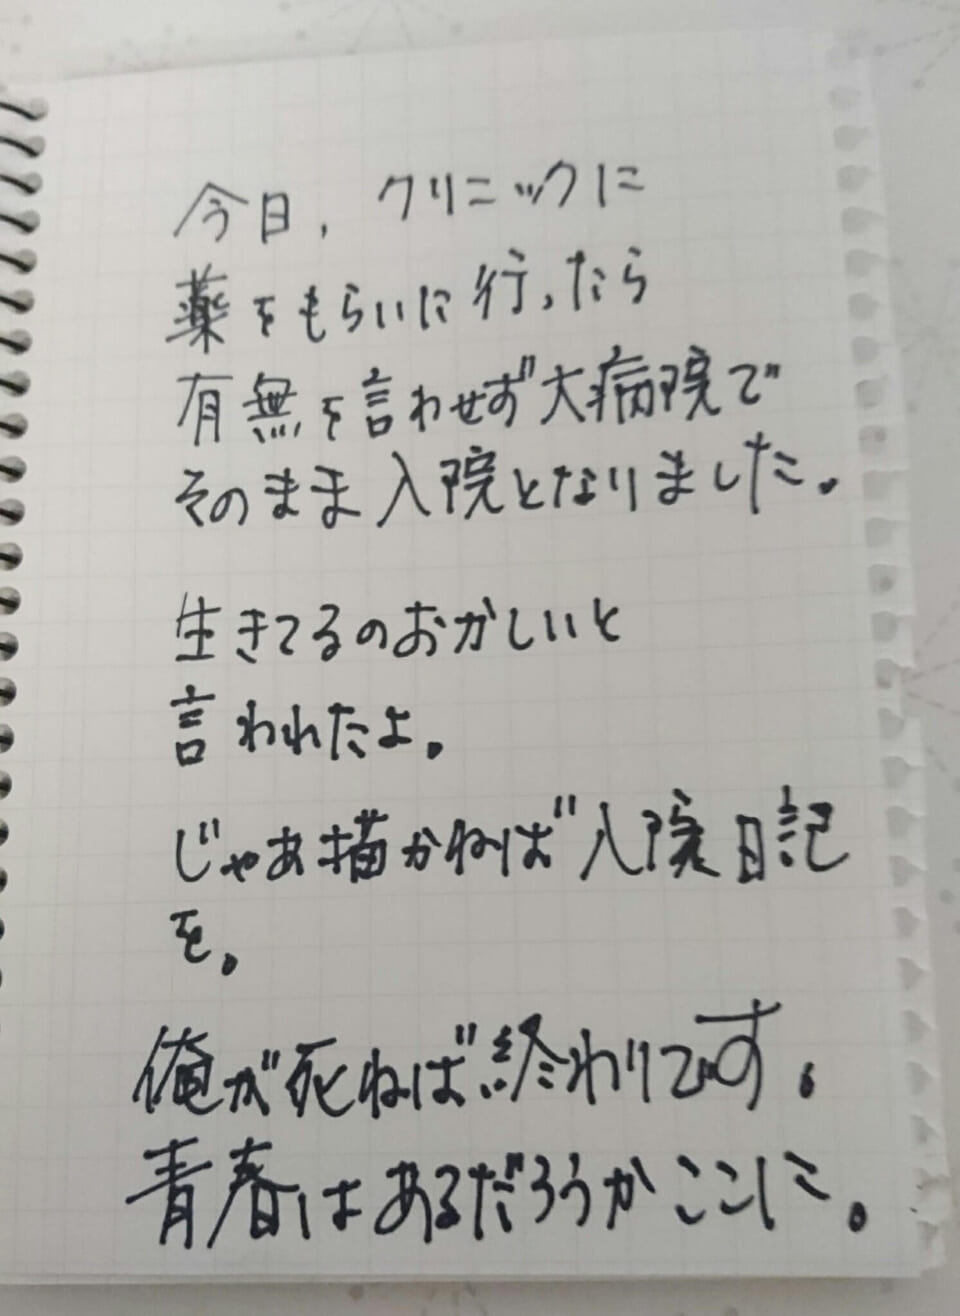 今日、クリニックに
薬をもらいに行ったら
有無を言わせず大病院で
そのまま入院となりました。
生きてるのおかしいと
言われたよ。
じゃあ描かねば入院日記
を。
俺が死ねば終わりです。
青春はあるだろうかここに。